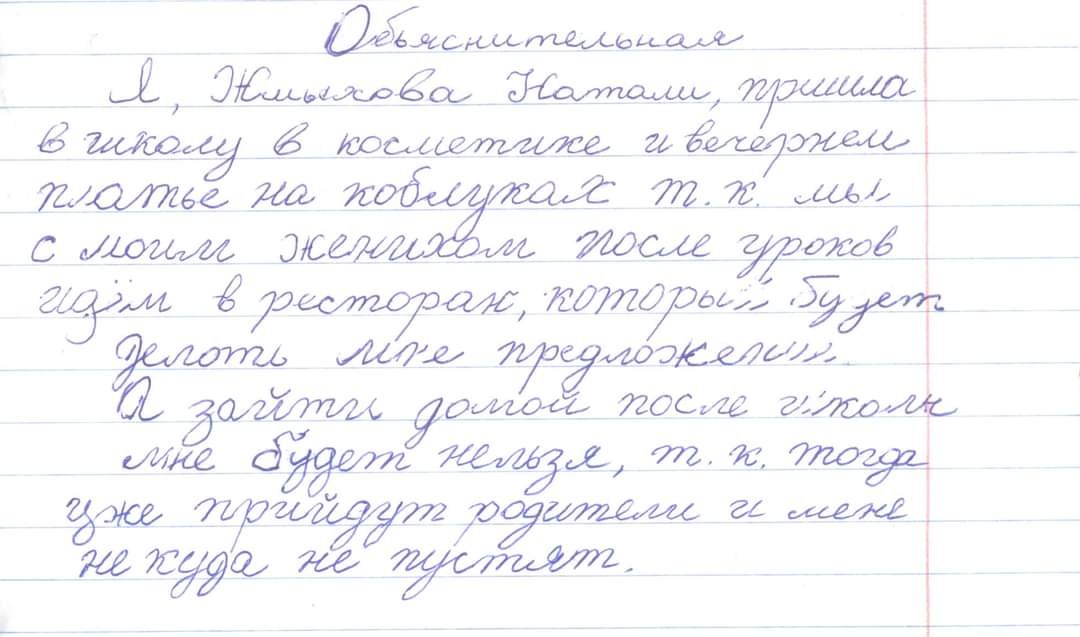 Объяснительная
Я, Жмыхова Натали, пришла
в школу в косметике и вечернем
платье на коблуках т.к. мы
с моим женихом после уроков
идём в ресторан, который будет
делоть мне предложений.
А зайти домой после школы
мне будет нельзя, т.к. тогда
уже прийдут родители и мене
не куда не пустят.